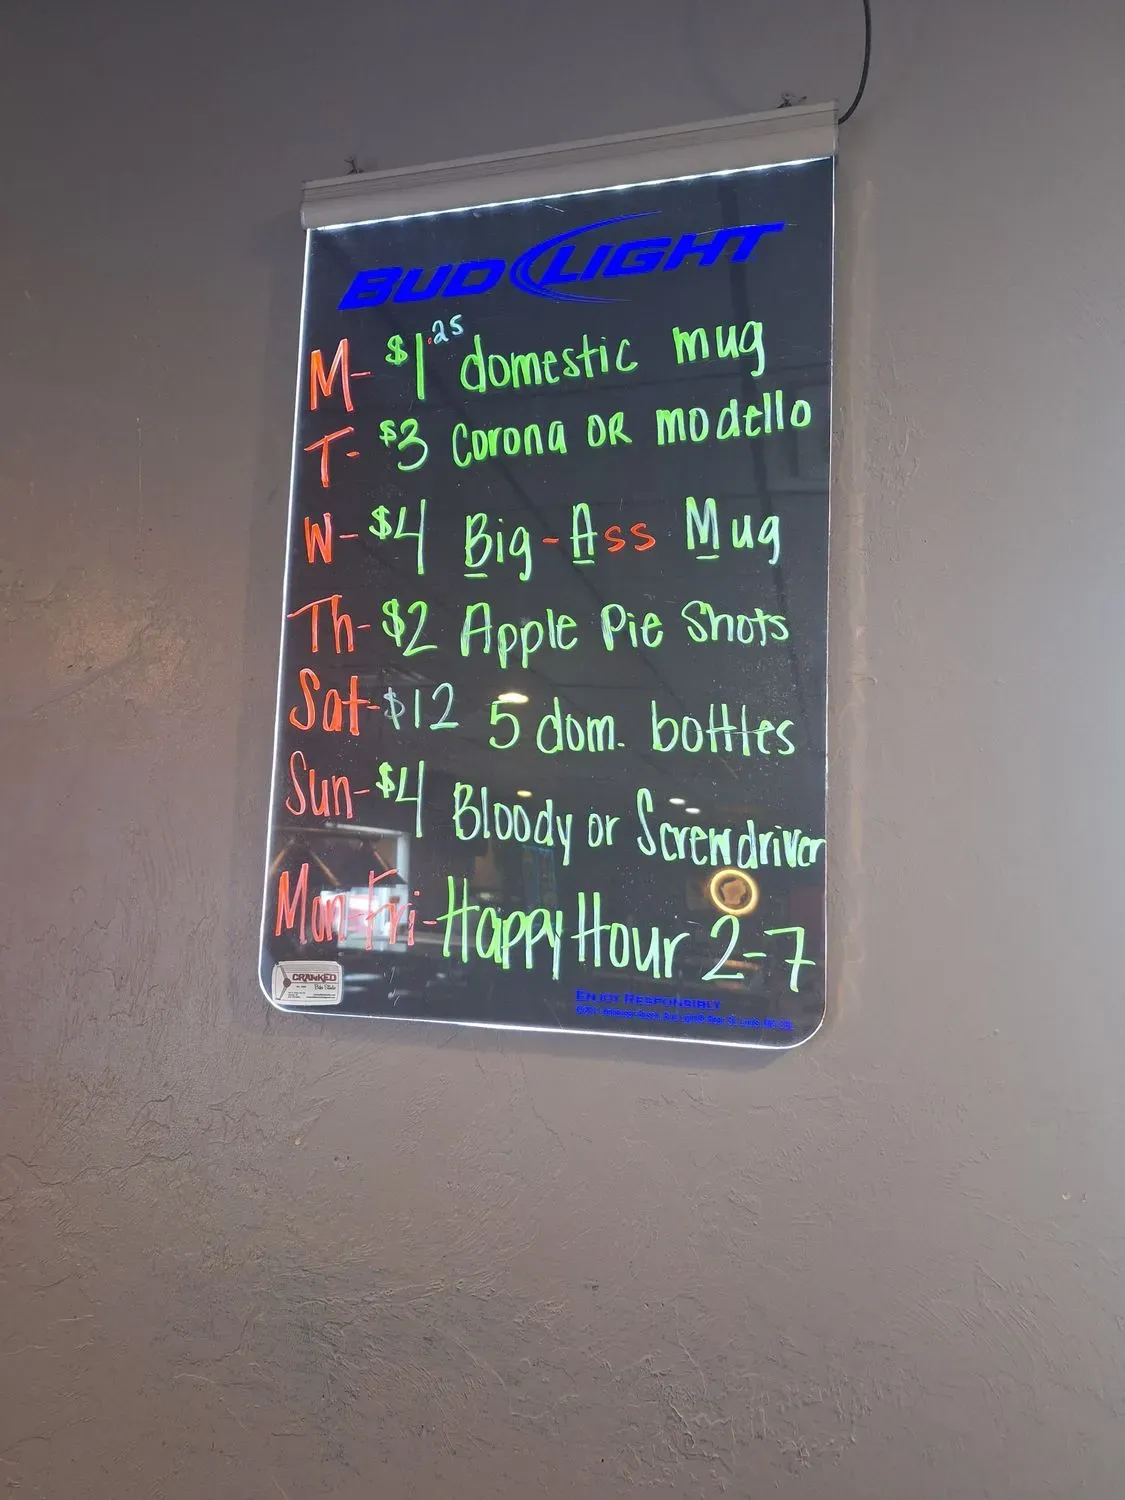 BUD LIGHT
M- $1.25 domestic mug
T- $3 Corona OR modello
W- $4 Big-Ass Mug
Th- $2 Apple Pie Shots
Sat- $12 5 dom. bottles
Sun- $4 Bloody or Screwdriver
Mon-Fri- Happy Hour 2-7
CRANKED
ENJOY RESPONSIBLY